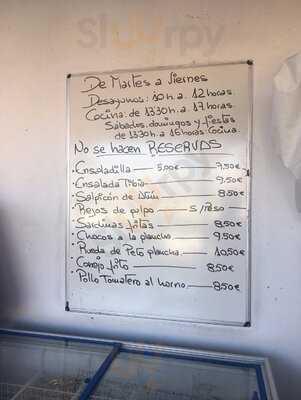 De Martes a Viernes
Desayunos: 10 h. a 12 horas.
Cocina: de 13'30 h. a 17 horas.
Sábados, domingos y fiestas
de 13'30 h. a 16 horas Cocina.
No se hacen RESERVAS
· Ensaladilla — 5,00€ — 7,50€
· Ensalada tibia — 9,50€
· Salpicón de — 8,50€
· Rejos de pulpo — S/Peso —
· Sardinas fritas — 8,50€
· Chocos a la plancha — 9,50€
· Rueda de Peto plancha — 10,50€
· Conejo frito — 8,50€
· Pollo Tomatero al horno — 8,50€